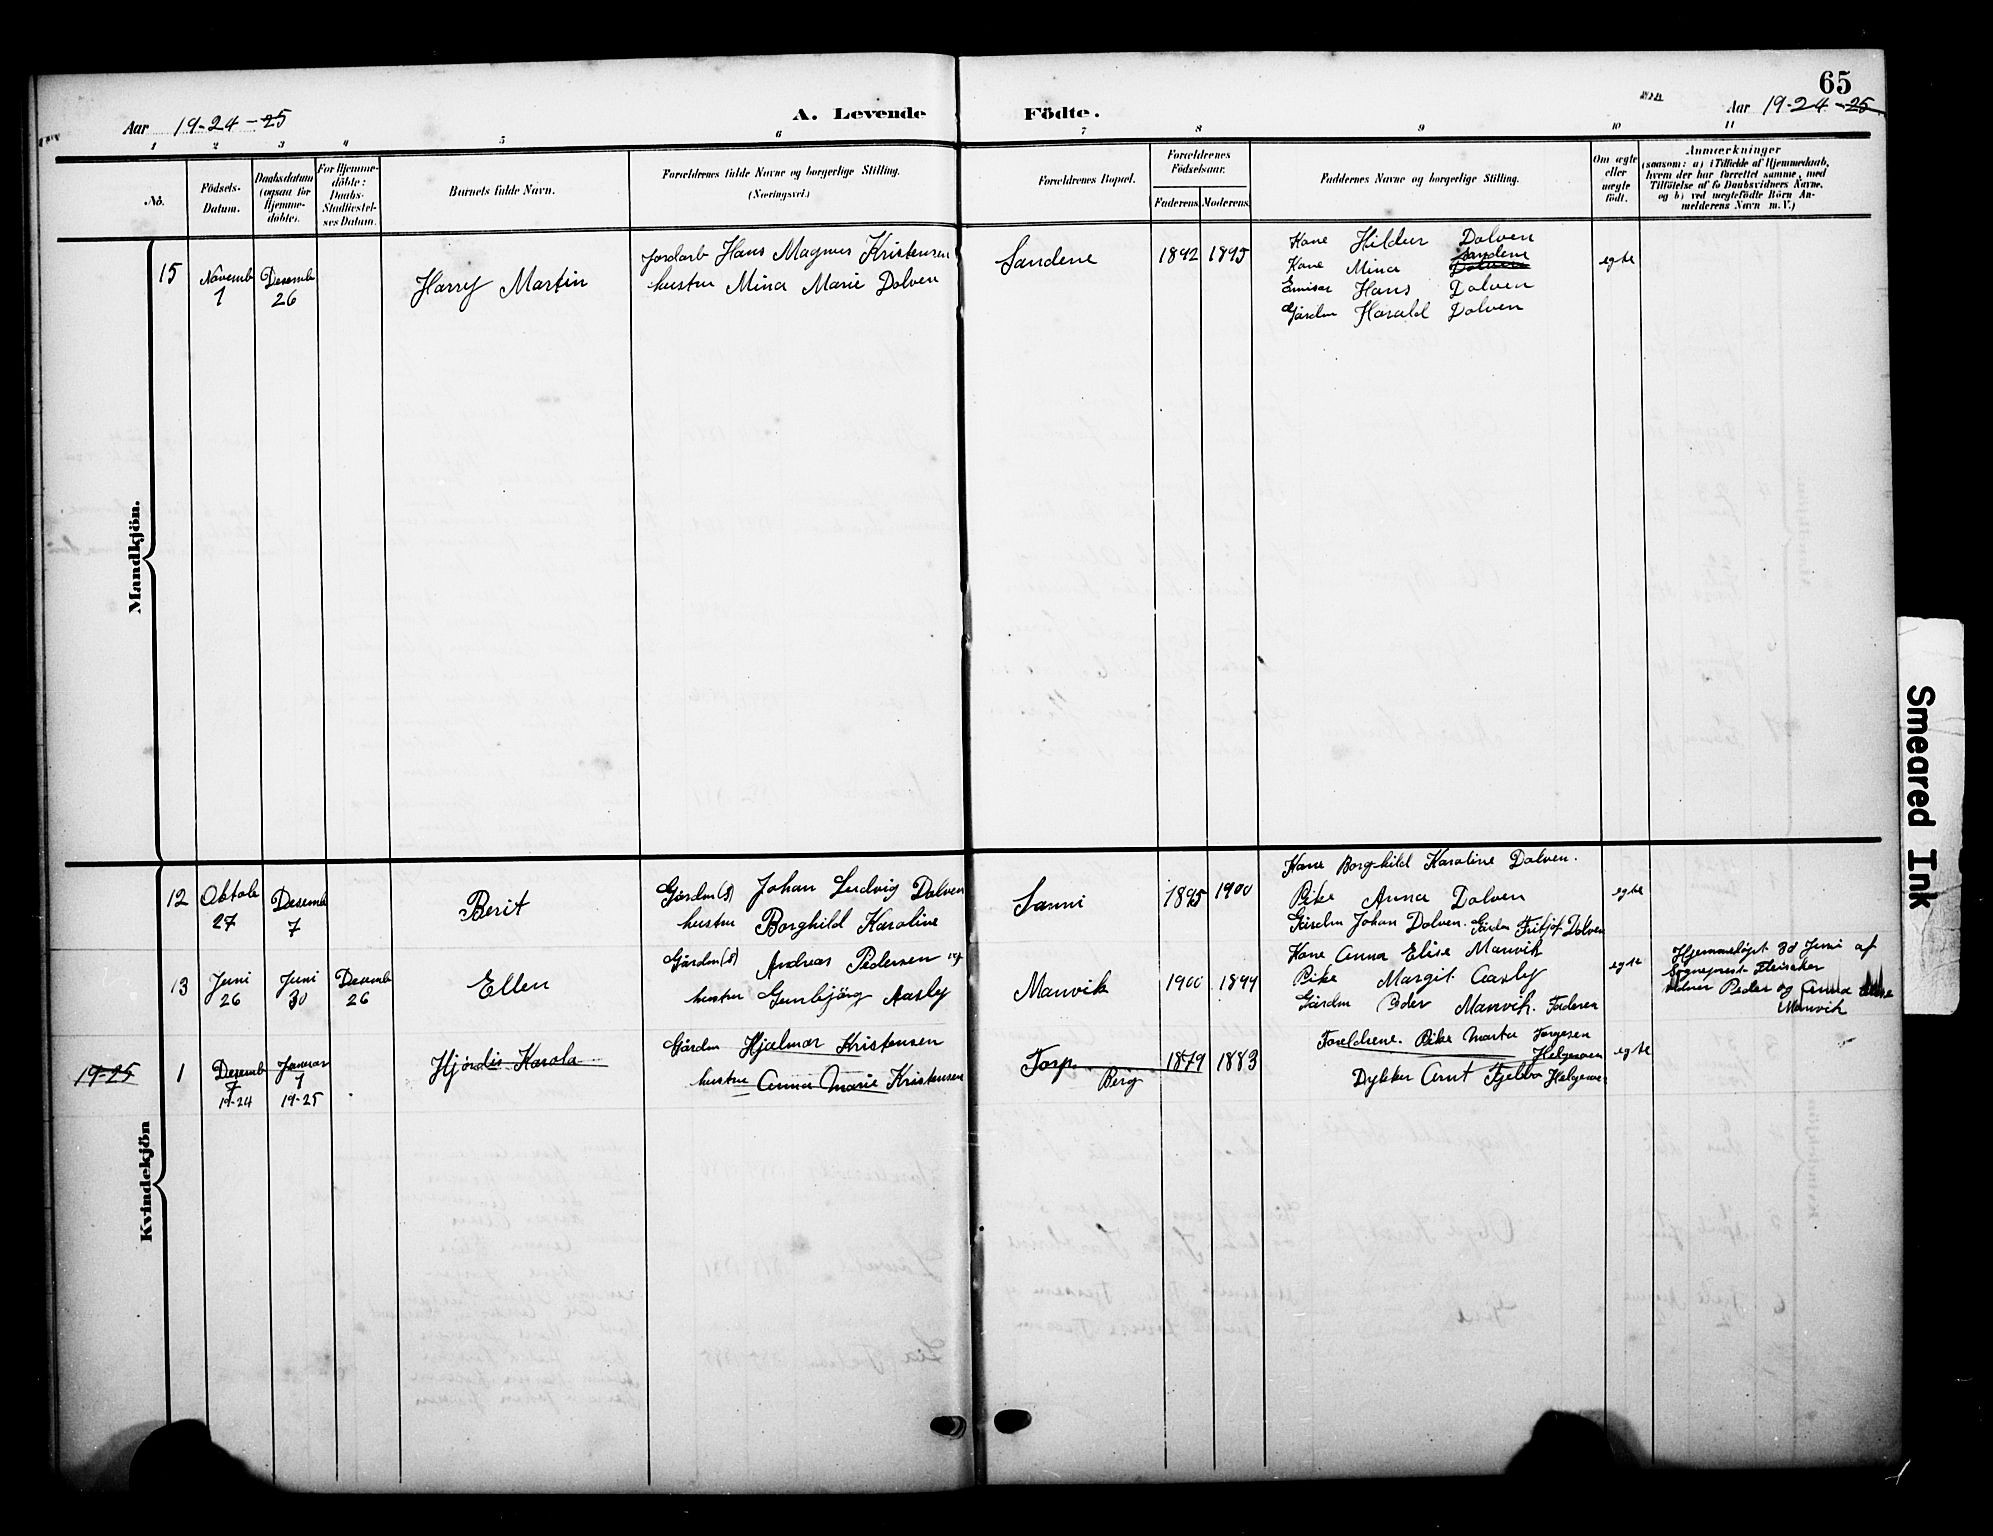 65
Aar 19-24-25
A. Levende Födte.
Aar 19-24-25
1 2 3 4 5 6 7 8 9 10 11
No.
Födsels-
Datum.
Daabsdatum
(ogsaa for
Hjemme-
döbte).
For Hjemme-
döbte:
Daabs-
Stadfæstel-
ses Datum.
Barnets fulde Navn.
Forældrenes fulde Navne og borgerlige Stilling.
(Næringsvei.)
Forældrenes Bopæl.
Forældrenes
Födselsaar.
Faderens
Moderens
Faddernes Navne og borgerlige Stilling.
Om ægte
eller
uægte
född.
Anmærkninger
(saasom: a) i Tilfælde af Hjemmedaab,
hvem der har forrettet samme, med
Tilföielse af to Daabsvidners Navne,
og b) ved uægtefödte Börn An-
melderens Navn m. V.)
Mandkjön.
15
Novemb
1
Desemb
26
Harry Martin
Jordarb Hans Magnus Kristensen
hustru Mina Marie Dolven
Sandene
1892
1895
Kone Hildur Dolven
Kone Mina Sandene
Hans Dolven
Gårdm Harald Dolven
egte
Kvindekjön
12
Oktob
27
Desemb
7
Berit
Gårdm (s) Johan Ludvig Dolven
hustru Borghild Karoline
Sanni
1895
1900
Kone Borghild Karoline Dolven.
Pike Anna Dolven
Gårdm Johan Dolven. Gårdm Fritjof Dolven
egte
13
Juni
26
Juni
30
Desemb
26
Ellen
Gårdm (s) Andreas Pedersen og
hustru Gunbjörg Aasly
Manvik
1900
1899
Kone Anna Elise Manvik
Pike Margit Aasly
Gårdm Peder Manvik. Faderen
egte
Hjemmedøpt 30 Juni af
Sogneprest
Peder og Anna Elise
Manvik
19-25
1
Desemb
7
19-24
Januar
1
19-25
Hjördis Karola
Gårdm Hjalmar Kristensen
hustru Anna Marie Kristensen
Torp
Berg
1879
1883
Foreldrene. Pike Marta Torgersen
Helgesen
Dykker Arnt Helgesen
egte
Smeared Ink